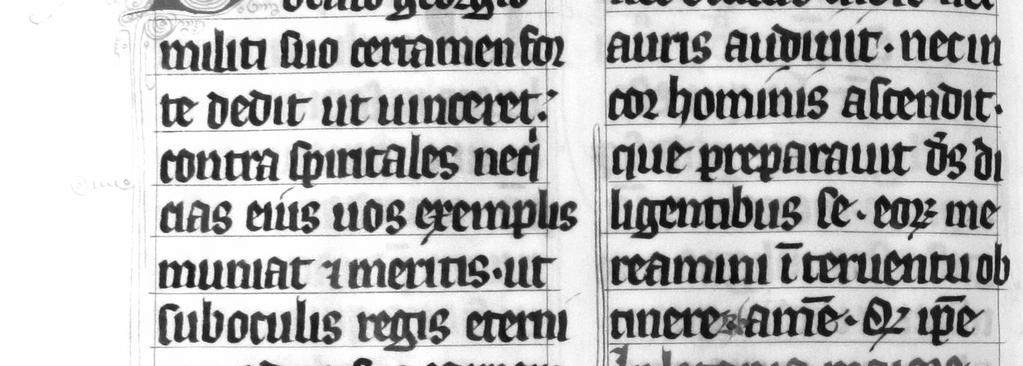 beato georgio
militi suo certamen for
te dedit ut uinceret:
contra spiritales neq̇
cias eius uos exemplis
muniat ⁊ meritis · ut
sub oculis regis eterni
auris audiuit · nec in
cor hominis ascendit ·
que preparauit d̄s di
ligentibus se · eoꝝ me
reamini īteruentu ob
tinere am̄e · Qꝫ ip̄e